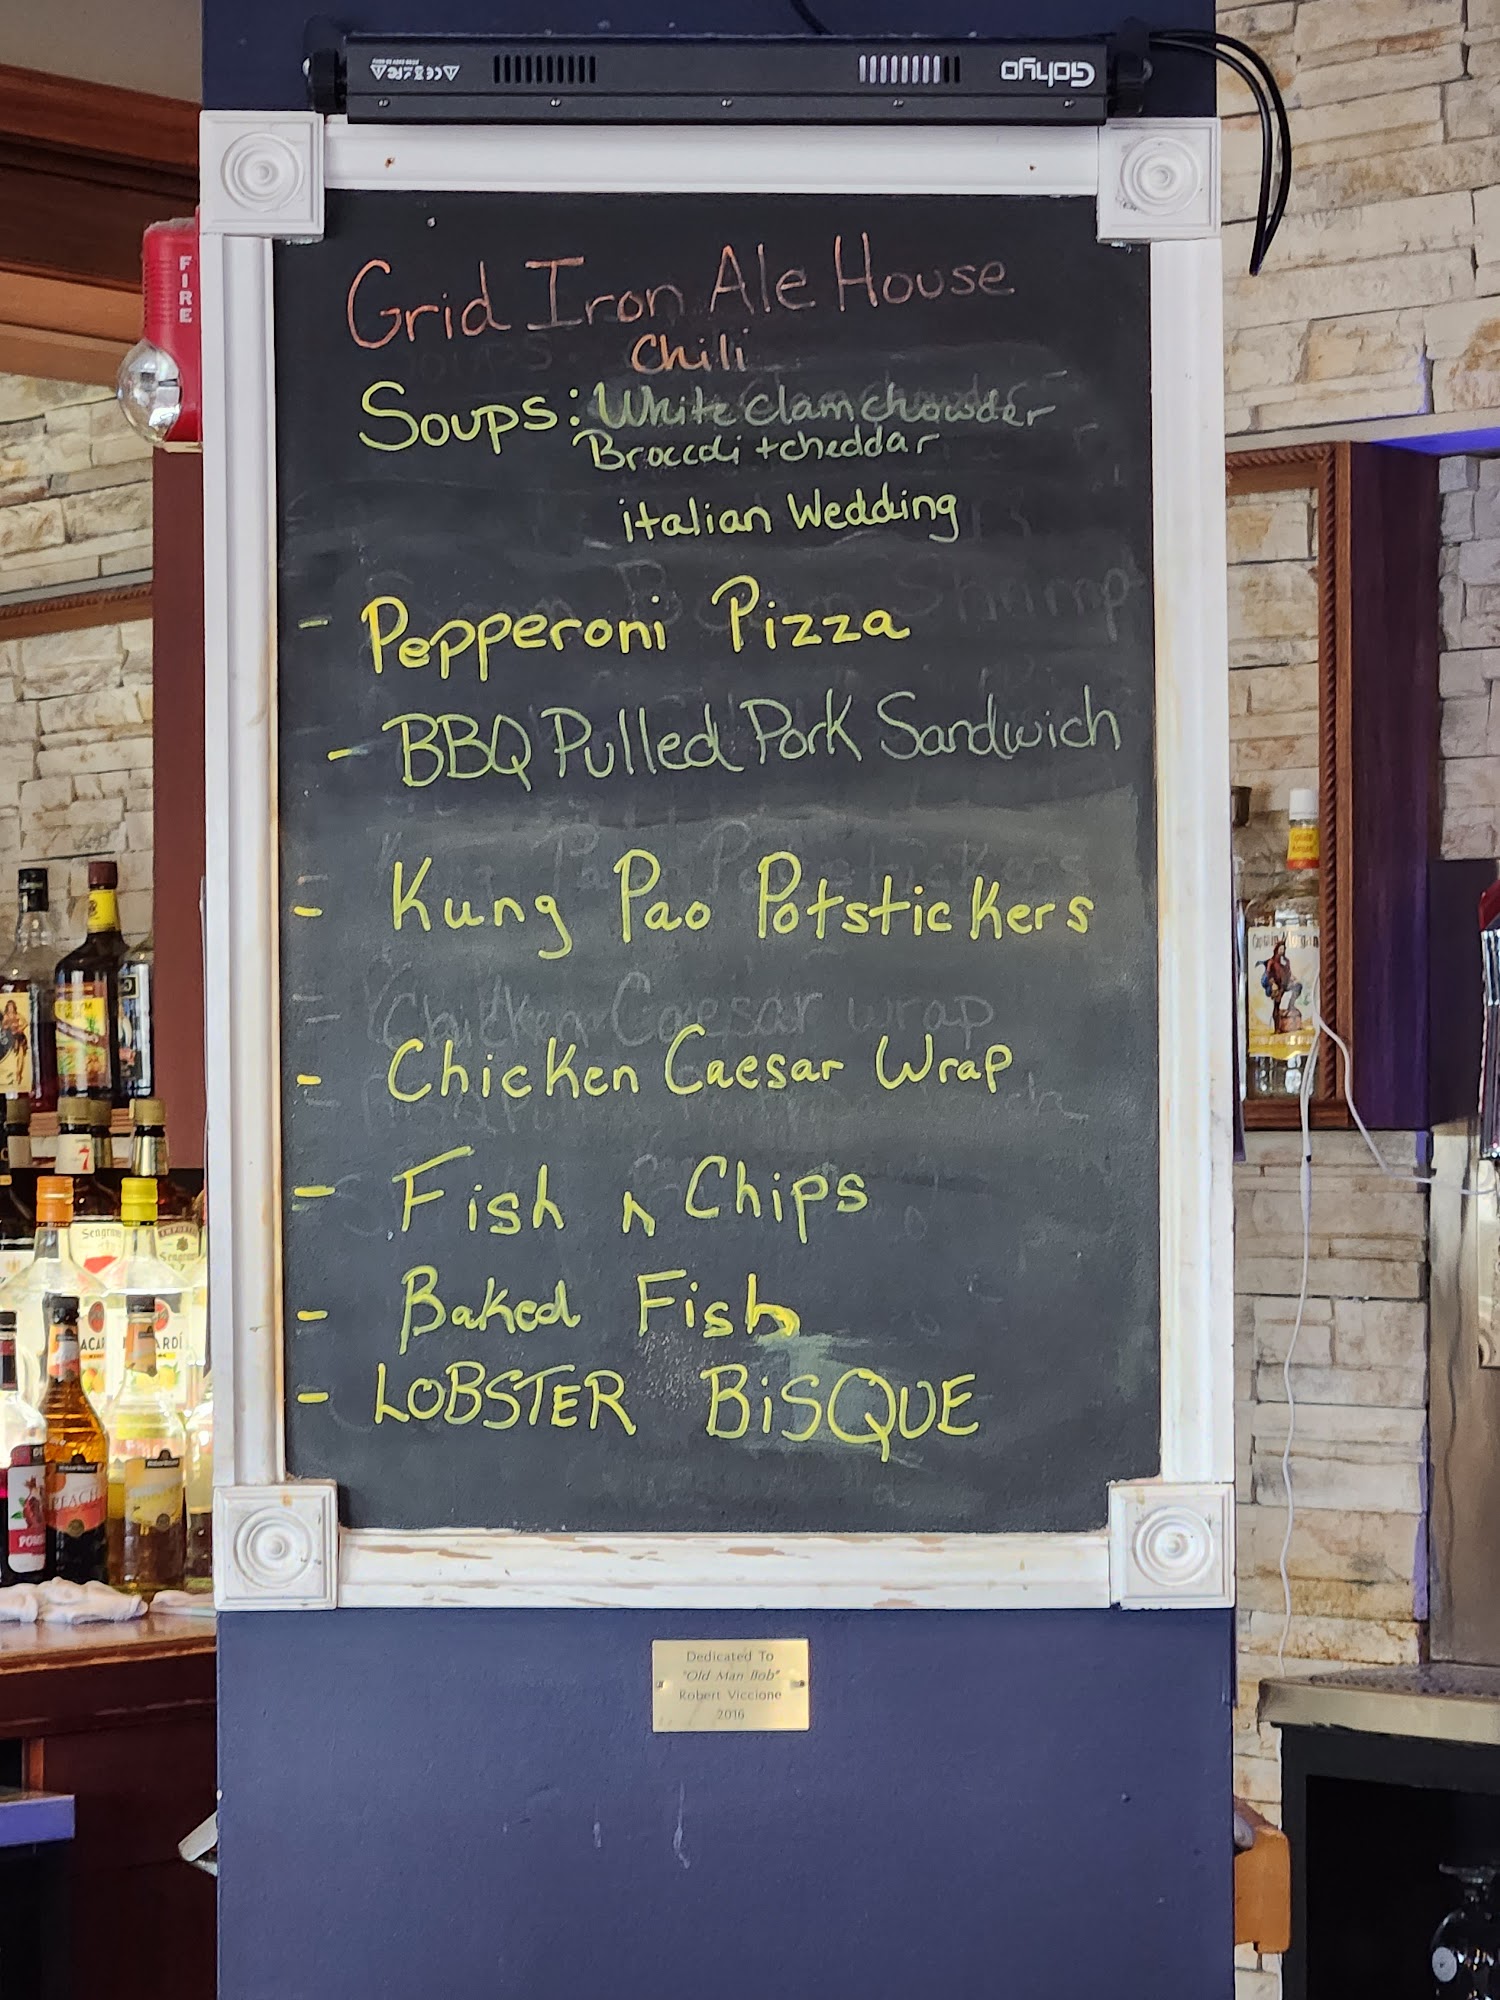 Gohyo
FIRE
Grid Iron Ale House
Chili
Soups: White Clam chowder
Broccoli + cheddar
italian Wedding
- Pepperoni Pizza
- BBQ Pulled Pork Sandwich
- Kung Pao Potstickers
Chicken Caesar wrap
- Chicken Caesar Wrap
- Fish n Chips
- Baked Fish
- LOBSTER BiSQUE
Captain Morgan
7
Seagram
PEACH
Dedicated To
"Old Man Bob"
Robert Viccione
2016